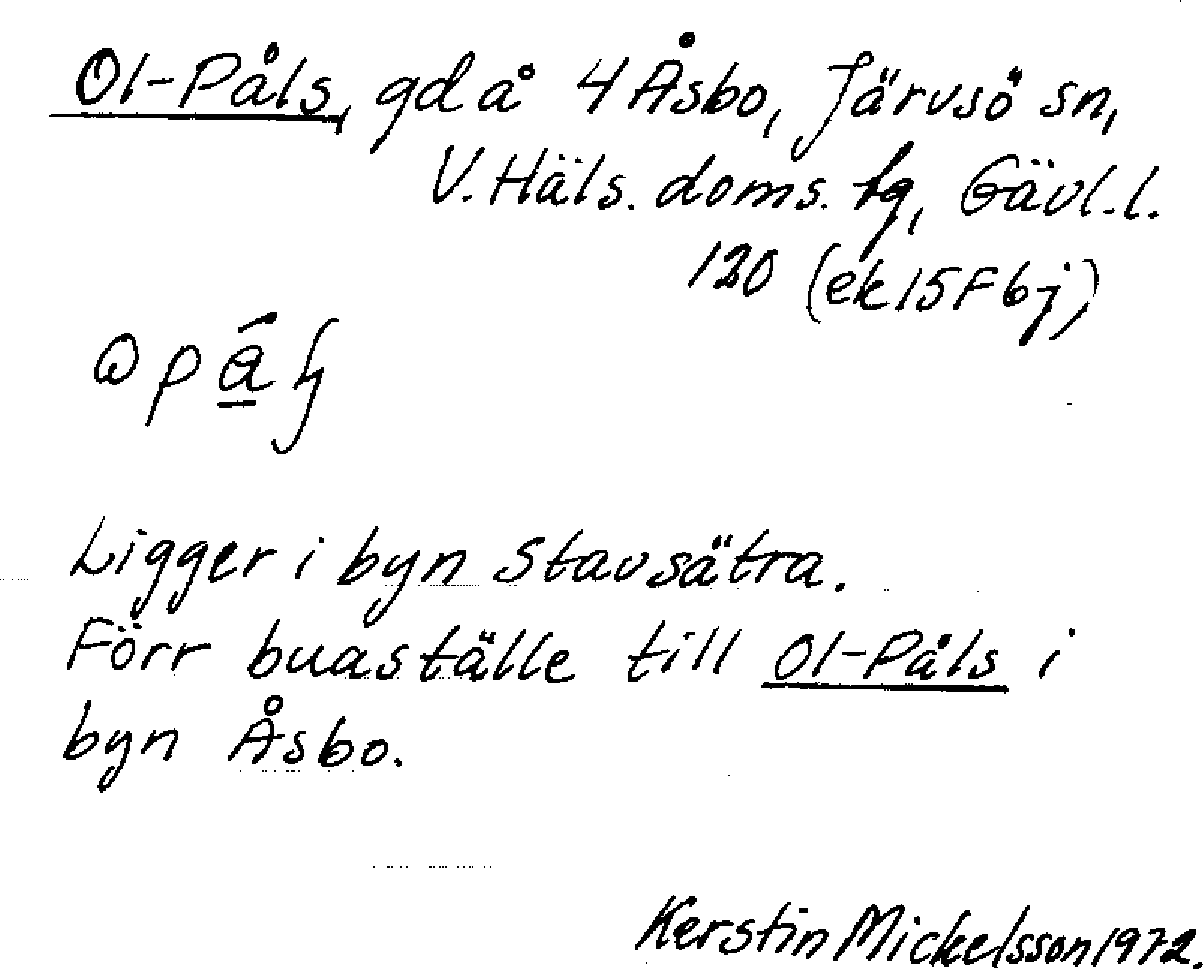 Ol-Påls, gd å 4 Åsbo, Järvsö sn,
V. Häls. doms. tg, Gävl. l.
120 (ek 15F6j)
Ligger i byn Stavsätra.
Förr buaställe till Ol-Påls i
byn Åsbo.
Kerstin Mickelsson 1972.